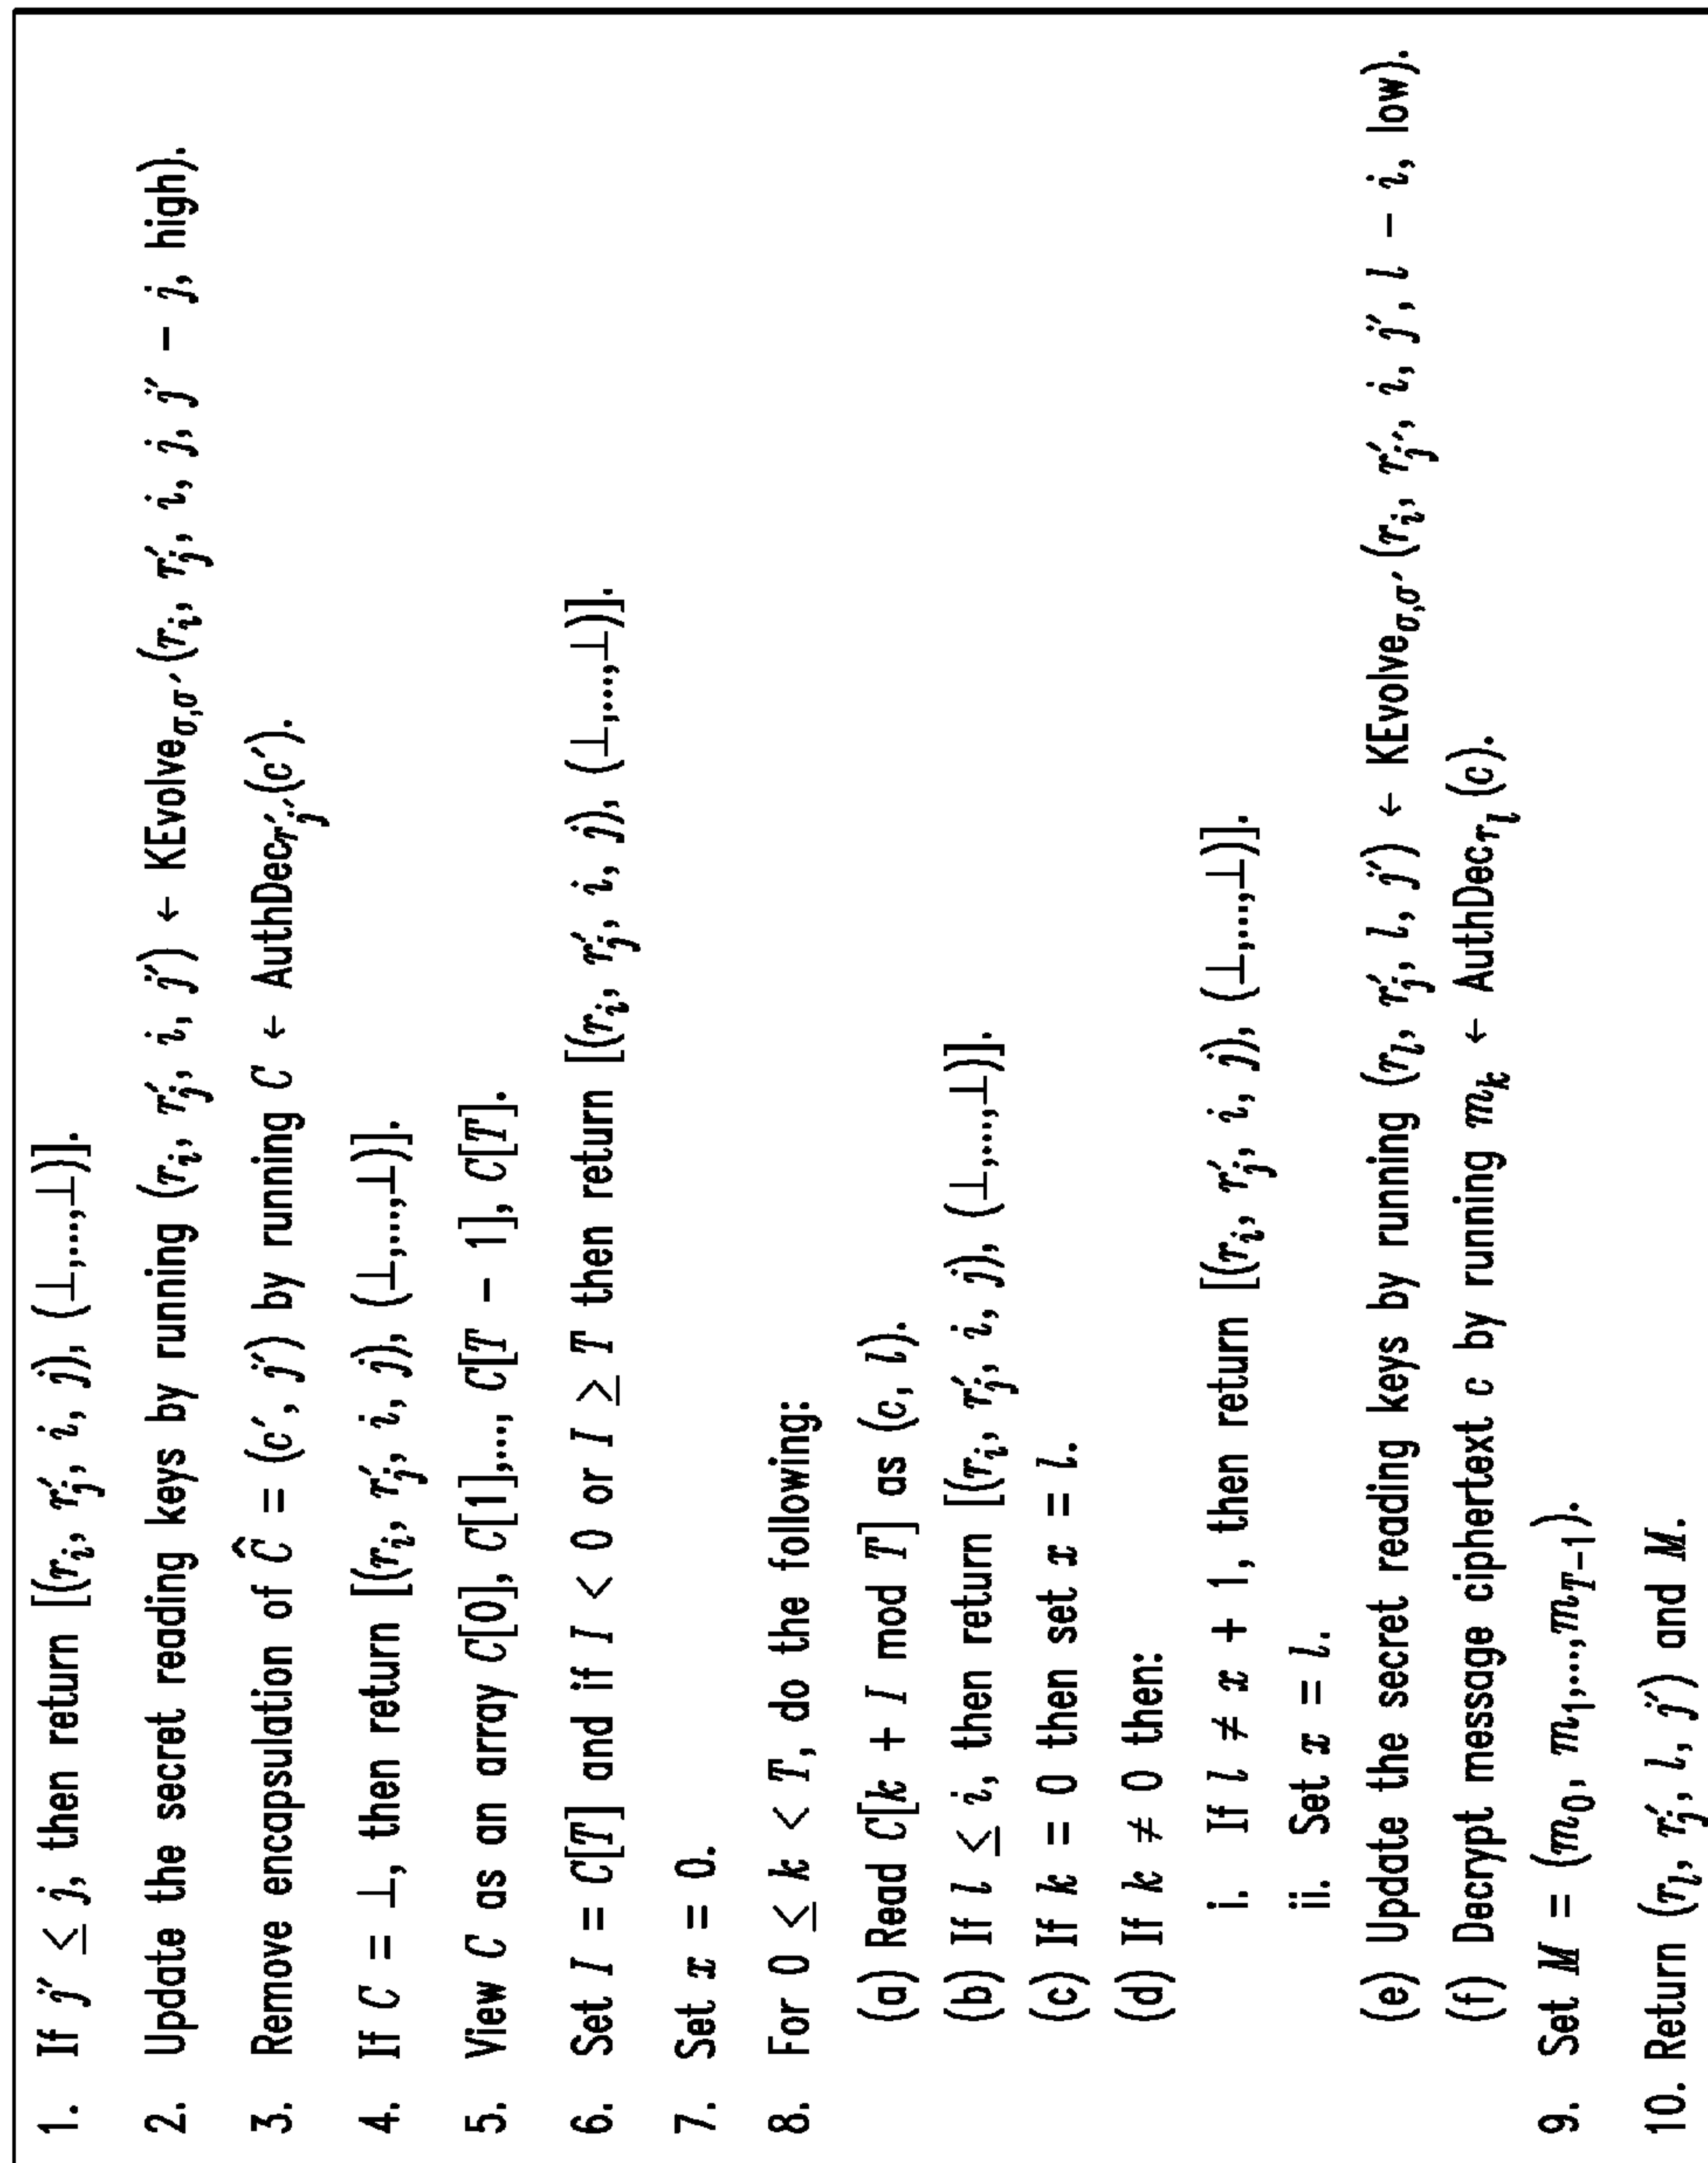 1. If j′ ≤ j, then return [(r_i, r′_j, i, j), (⊥,...,⊥)].
2. Update the secret reading keys by running (r_i, r′_j, i, j′) ← KEvolve_σ,σ′ (r_i, r′_j, i, j, j′ − j, high).
3. Remove encapsulation of Ĉ = (c′, j′) by running C ← AuthDec_r′_j′ (c′).
4. If C = ⊥, then return [(r_i, r′_j, i, j), (⊥,...,⊥)].
5. View C as an array C[0], C[1],..., C[T − 1], C[T].
6. Set I = C[T] and if I < 0 or I ≥ T then return [(r_i, r′_j, i, j), (⊥,...,⊥)].
7. Set x = 0.
8. For 0 ≤ k < T, do the following:
(a) Read C[k + I mod T] as (c, l).
(b) If l ≤ i, then return [(r_i, r′_j, i, j), (⊥,...,⊥)].
(c) If k = 0 then set x = l.
(d) If k ≠ 0 then:
i. If l ≠ x + 1, then return [(r_i, r′_j, i, j), (⊥,...,⊥)].
ii. Set x = l.
(e) Update the secret reading keys by running (r_l, r′_j, l, j′) ← KEvolve_σ,σ′ (r_i, r′_j′, i, j′, l − i, low).
(f) Decrypt message ciphertext c by running m_k ← AuthDec_r_l (c).
9. Set M = (m_0, m_1,...,m_T−1).
10. Return (r_l, r′_j, l, j′) and M.